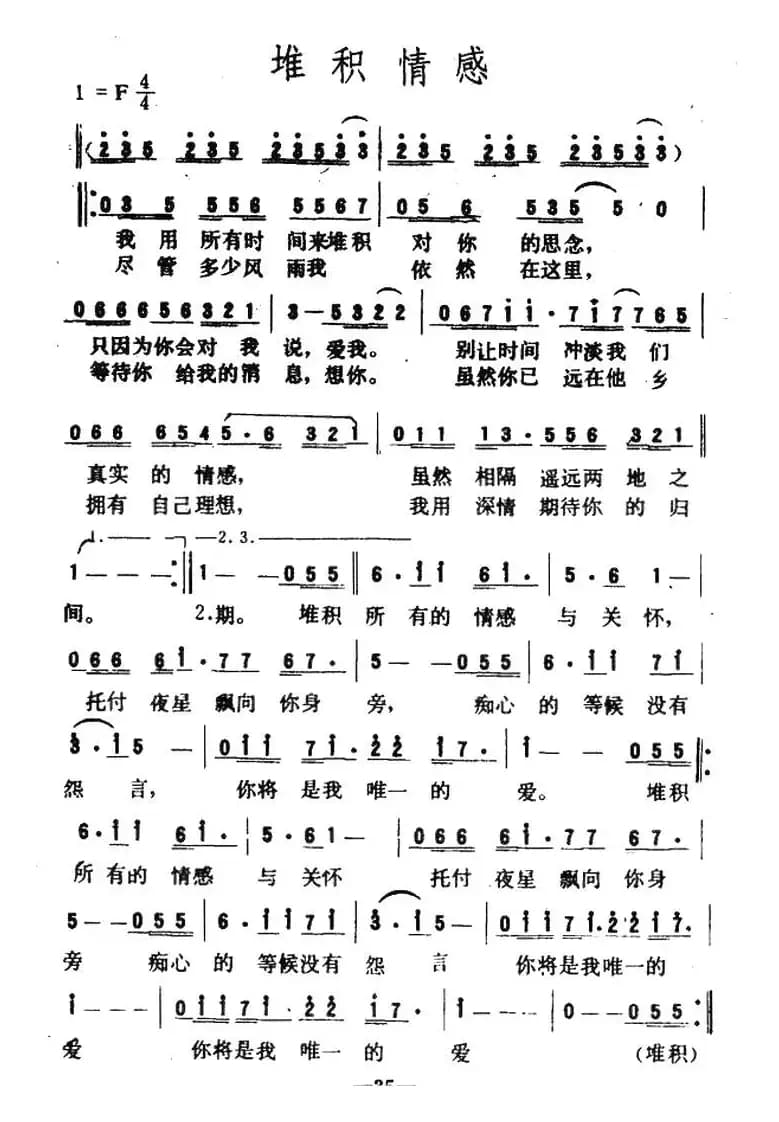 堆积情感
1 = F 4/4
(235 235 23533 | 235 235 23533)
‖: 03 5 556 5567 | 05 6 535 5 0
我 用 所有时 间来堆积 对 你 的思念，
尽 管 多少风 雨我 依 然 在这里，
066656321 | 3－5322 | 0671i·7i7765
只因为你会对 我 说，爱我。 别让时间 冲淡我 们
等待你 给我的消 息，想你。 虽然你已 远在他 乡
066 6545·6 321 | 011 13·556 321 ‖
真实 的 情感， 虽然 相隔 遥远两 地 之
拥有 自己理想， 我用 深情 期待你 的 归
1. 2.3.
1－－－ :‖ 1－－055 ‖ 6·ii 6i· | 5·6 1－ |
间。 2.期。 堆积 所 有的 情感 与 关 怀，
066 6i·77 67· | 5－－055 | 6·ii 7i |
托付 夜星 飘向 你身 旁， 痴心 的 等候 没有
3·i5－ | 0ii 7i·22 i7· | i－－055 :‖
怨 言， 你将 是我 唯一 的 爱。 堆积
6·ii 6i· | 5·61－ | 066 6i·77 67· |
所 有的 情感 与 关怀 托付 夜星 飘向 你身
5－－055 | 6·ii7i | 3·i5－ | 0ii7i·22i7·
旁 痴心 的 等候没有 怨 言 你将是我唯一的
i－－－ | 0ii7i·22 i7· | i－－－ | 0－－055 :‖
爱 你将是我 唯一 的 爱 (堆积)
—35—